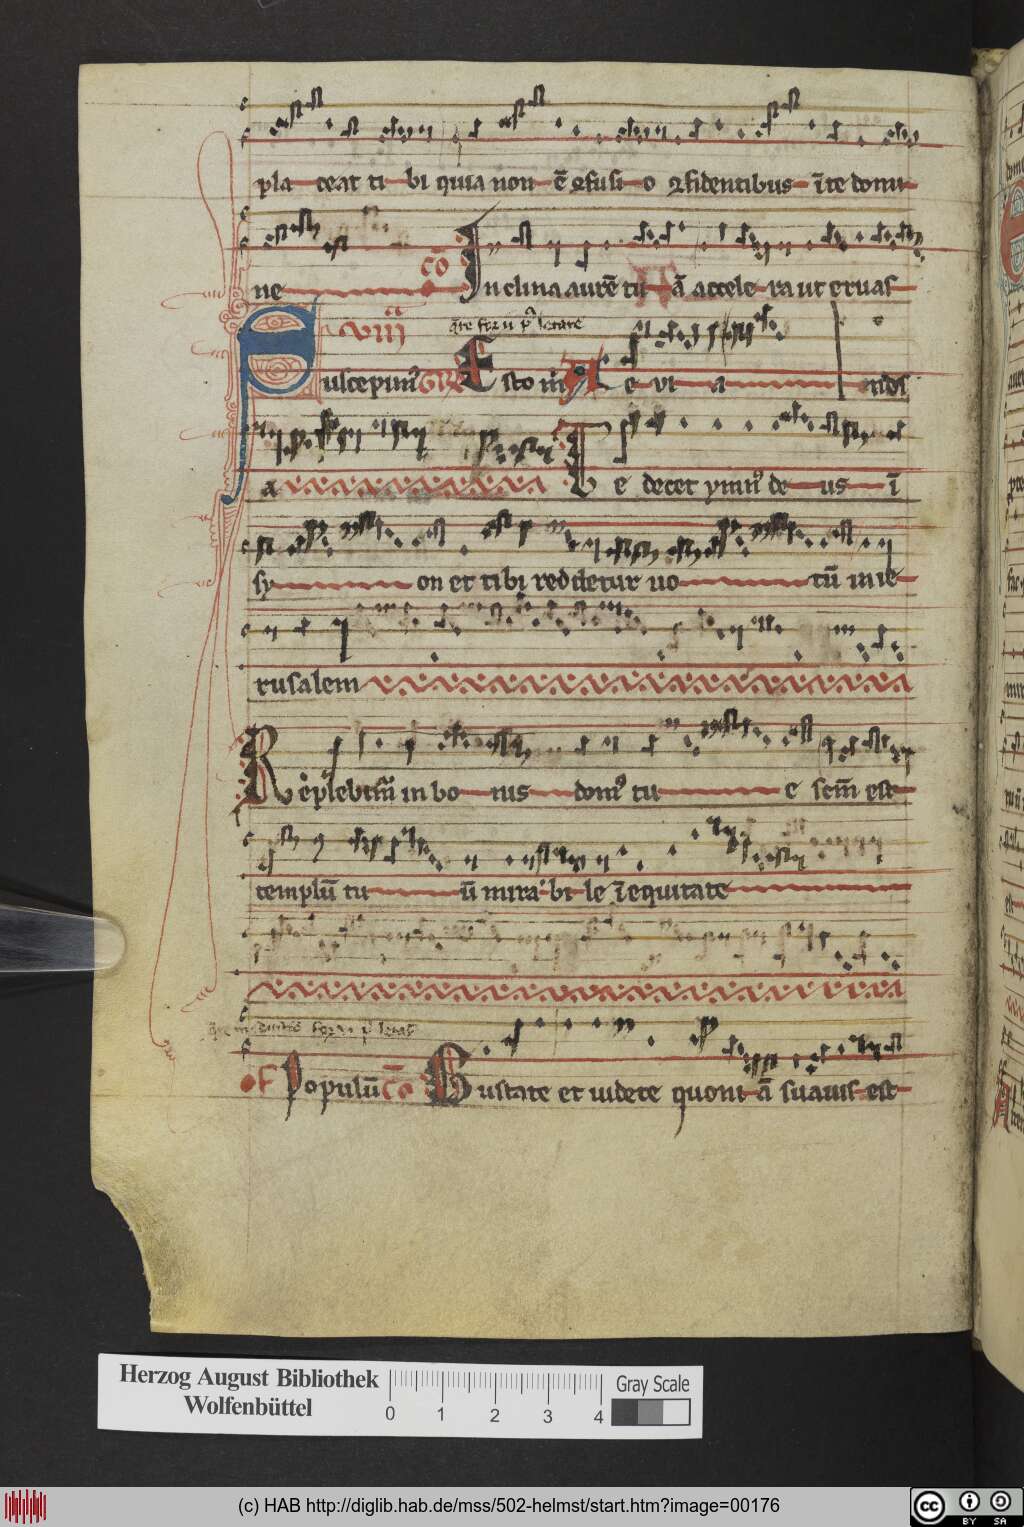 pla ceat ti bi quia non ē ꝯfusi o ꝯfidentibus ī te domi
ne cō Inclina aurē tu ā accele ra ut eruas
viii
Suscepim⁹ GR Esto m A e vi a
a Te decet ymn⁹ de us ī
sy on et tibi reddetur uo tū in ie
rusalem
Replebim̄ in bo nis dom⁹ tu e scm̄ est
templū tu ū mira bi le ī equitate
OF Populū cō Gustate et uidete quoni ā suauis est
Herzog August Bibliothek
Wolfenbüttel
0 1 2 3 4
Gray Scale
(c) HAB http://diglib.hab.de/mss/502-helmst/start.htm?image=00176
cc BY SA